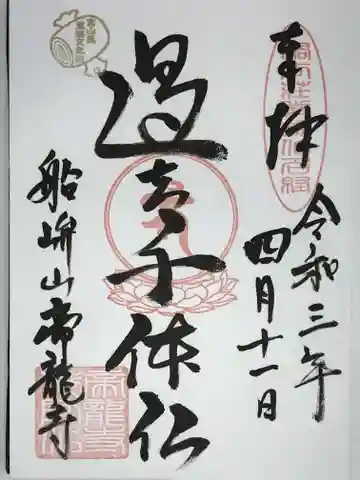 奉拝
令和三年
四月十一日
過去千体仏
船峅山帝龍寺
帝龍寺